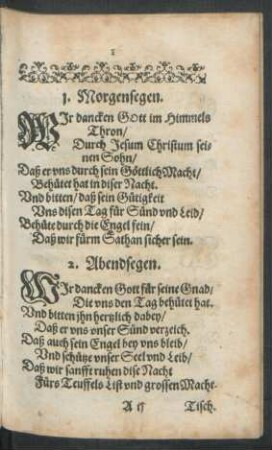 1
1. Morgensegen.
WIr dancken GOtt im Himmels
Thron/
Durch Jesum Christum sei-
nen Sohn/
Daß er vns durch sein Göttlich Macht/
Behütet hat in diser Nacht.
Vnd bitten/ daß sein Gütigkeit
Vns disen Tag für Sünd vnd Leid/
Behüte durch die Engel fein/
Daß wir fürm Sathan sicher sein.
2. Abendsegen.
WIr dancken Gott für seine Gnad/
Die vns den Tag behütet hat.
Vnd bitten ihn hertzlich dabey/
Daß er vns vnser Sünd verzeich.
Daß auch sein Engel bey vns bleib/
Vnd schütze vnser Seel vnd Leib/
Daß wir sanfft ruhen dise Nacht
Fürs Teuffels List vnd grossen Macht.
A ij Tisch.